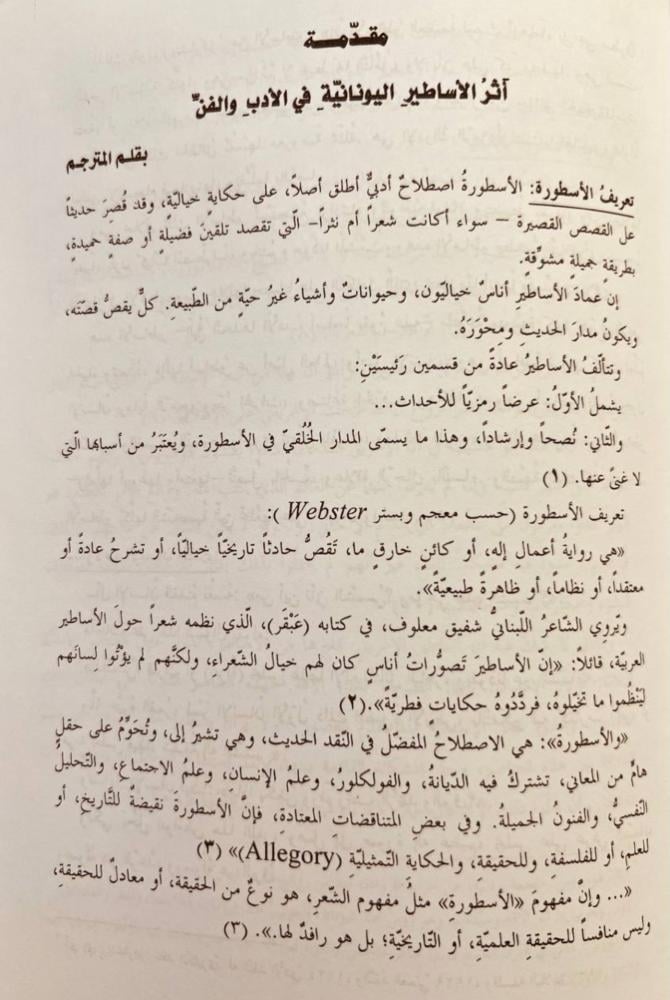 مقدّمة
آثرُ الأساطيرِ اليونانيّةِ في الأدبِ والفنِّ
بقلم المترجم
تعريفُ الأسطورة: الأسطورةُ اصطلاحٌ أدبيٌّ أطلق أصلاً، على حكايةٍ خياليّةٍ، وقد قُصرَ حديثاً
عل القصص القصيرة – سواء أكانت شعراً أم نثراً– الّتي تقصد تلقينَ فضيلةٍ أو صفةٍ حميدةٍ،
بطريقةٍ جميلةٍ مشوِّقةٍ.
إن عمادَ الأساطيرِ أناسٌ خياليّون، وحيواناتٌ وأشياءُ غيرُ حيّةٍ من الطّبيعةِ. كلٌّ يقصُّ قصّتَه،
ويكونُ مدارَ الحديثِ ومِحْوَرَهُ.
وتتألّفُ الأساطيرُ عادةً من قسمين رَئيسَيْنِ:
يشملُ الأوّلُ: عرضاً رمزيّاً للأحداث...
والثّاني: نُصحاً وإرشاداً، وهذا ما يسمّى المدار الخُلُقيّ في الأسطورة، ويُعتَبَرُ من أسبابها الّتي
لا غنىً عنها. (١)
تعريف الأسطورة (حسب معجم وبستر Webster ):
«هي روايةُ أعمالِ إلهٍ، أو كائنٍ خارقٍ ما، تَقُصُّ حادثاً تاريخيّاً خياليّاً، أو تشرحُ عادةً أو
معتقداً، أو نظاماً، أو ظاهرةً طبيعيّةً».
ويَروِي الشّاعرُ اللّبنانيُّ شفيق معلوف، في كتابه (عَبْقَر)، الّذي نظمه شعراً حولَ الأساطير
العربيّة، قائلاً: «إنّ الأساطيرَ تَصوُّراتُ أناسٍ كان لهم خيالُ الشّعراءِ، ولكنّهم لم يؤتُوا لِسانَهم
لِيَنْظُموا ما تخيّلوهُ، فردَّدُوهُ حكاياتٍ فطريّةً».(٢)
«والأسطورةُ»: هي الاصطلاحُ المفضّلُ في النّقد الحديث، وهي تشيرُ إلى، وتُحَوِّمُ على حقلٍ
هامٍّ من المعاني، تشتركُ فيه الدّيانةُ، والفولكلورُ، وعلمُ الإنسانِ، وعلمُ الاجتماعِ، والتّحليلُ
النّفسيُّ، والفنونُ الجميلةُ. وفي بعضِ المتناقضاتِ المعتادةِ، فإنَّ الأسطورةَ نقيضةٌ للتَّاريخِ، أو
للعلمِ، أو للفلسفةِ، وللحقيقةِ، والحكايةِ التّمثيليّةِ (Allegory)» (٣)
«... وإنَّ مفهومَ «الأسطورةِ» مثلُ مفهوم الشّعرِ، هو نوعٌ من الحقيقة، أو معادلٌ للحقيقةِ،
وليس منافساً للحقيقةِ العلميّةِ، أو التّاريخيّةِ؛ بل هو رافدٌ لها.». (٣)